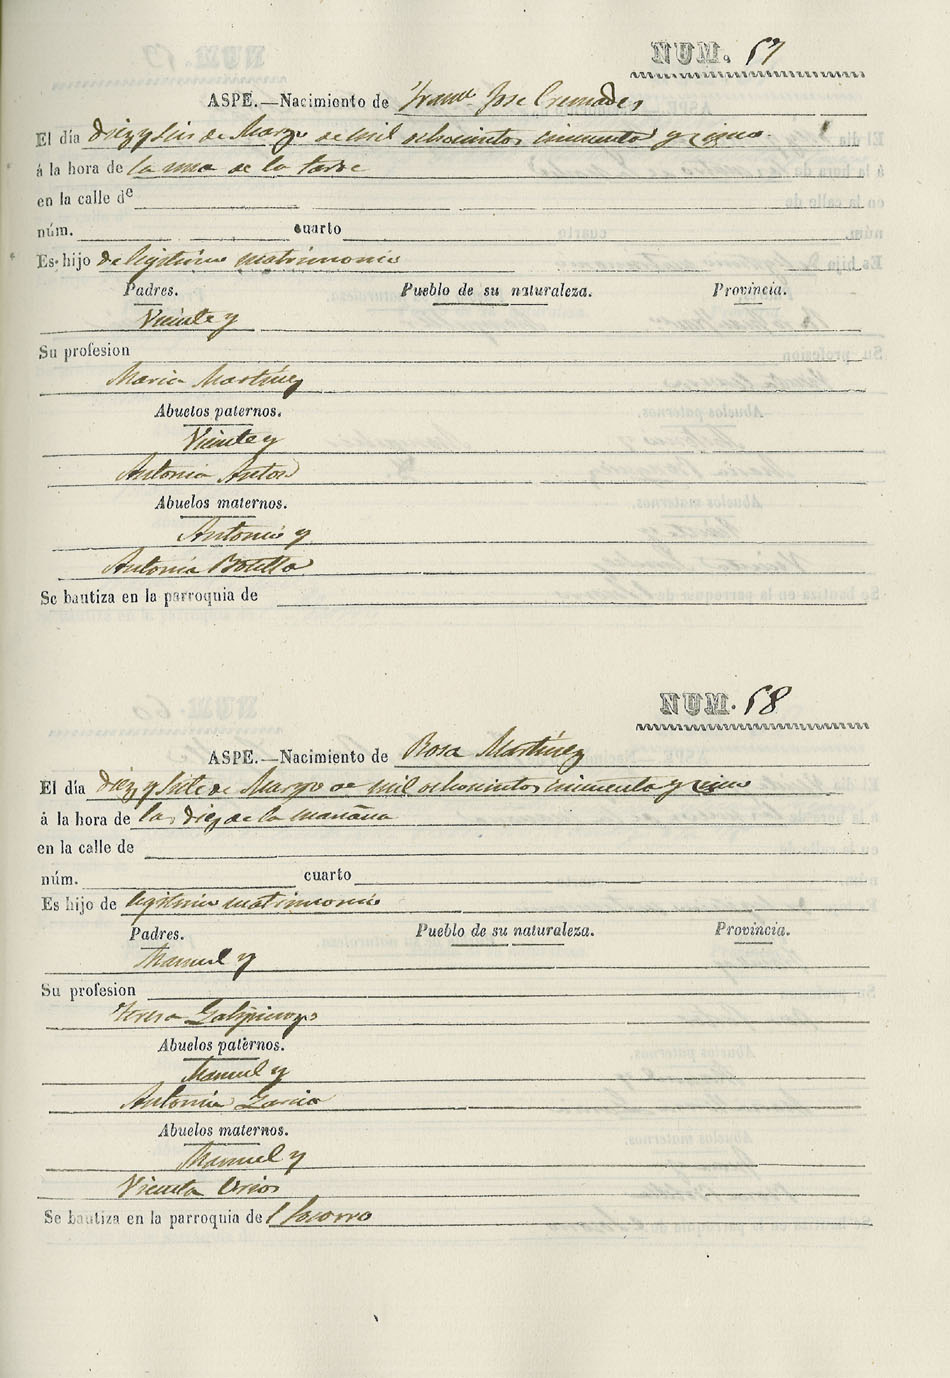 NUM. 57
ASPE.—Nacimiento de Franco Jose Cremades
El día diez y seis de Marzo de mil ochocientos cincuenta y cinco
á la hora de la una de la tarde
en la calle de
núm. cuarto
Es hijo de legitimo matrimonio
Padres. Pueblo de su naturaleza. Provincia.
Vicente y
Su profesion
Maria Martinez
Abuelos paternos.
Vicente y
Antonia Anton
Abuelos maternos.
Antonio y
Antonia Botella
Se bautiza en la parroquia de
NUM. 58
ASPE.—Nacimiento de Rosa Martinez
El día diez y siete de Marzo de mil ochocientos cincuenta y cinco
á la hora de las diez de la mañana
en la calle de
núm. cuarto
Es hijo de legitimo matrimonio
Padres. Pueblo de su naturaleza. Provincia.
Manuel y
Su profesion
Teresa
Abuelos paternos.
Manuel y
Antonia Garcia
Abuelos maternos.
Manuel y
Vicenta
Se bautiza en la parroquia del Socorro